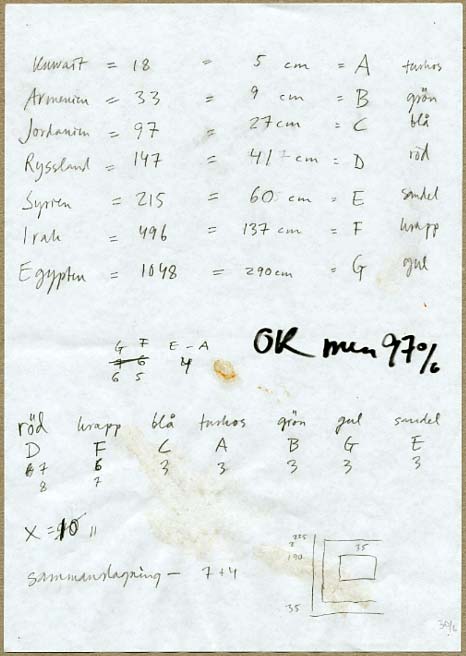 Kuwait = 18 = 5 cm = A turkos
Armenien = 33 = 9 cm = B grön
Jordanien = 97 = 27 cm = C blå
Ryssland = 147 = 41 cm = D röd
Syrien = 215 = 60 cm = E sandel
Irak = 496 = 137 cm = F krapp
Egypten = 1048 = 290 cm = G gul
G F E - A
7 6 4
6 5
OK men 97%
röd krapp blå turkos grön gul sandel
D F C A B G E
7 6 3 3 3 3 3
8 7
X = 10 11
sammanslagning - 7+4
35
190
35